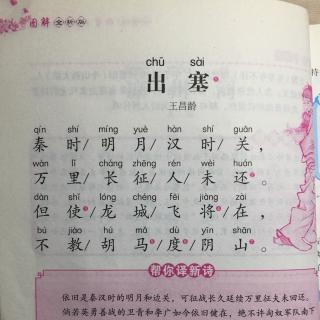 图解 全新版
chū sài
出 塞
王昌龄
qín shí míng yuè hàn shí guān
秦 时/ 明 月/ 汉 时/ 关，
wàn lǐ cháng zhēng rén wèi huán
万 里/ 长 征/ 人 未 还。
dàn shǐ lóng chéng fēi jiàng zài
但 使/ 龙 城/ 飞 将/ 在，
bú jiào hú mǎ dù yīn shān
不 教/ 胡 马/ 度/ 阴 山。
帮你译新诗
依旧是秦汉时的明月和边关，可征战长久延续万里征夫未回还。
倘若英勇善战的卫青和李广如今依旧健在，绝不许匈奴军队南下
持